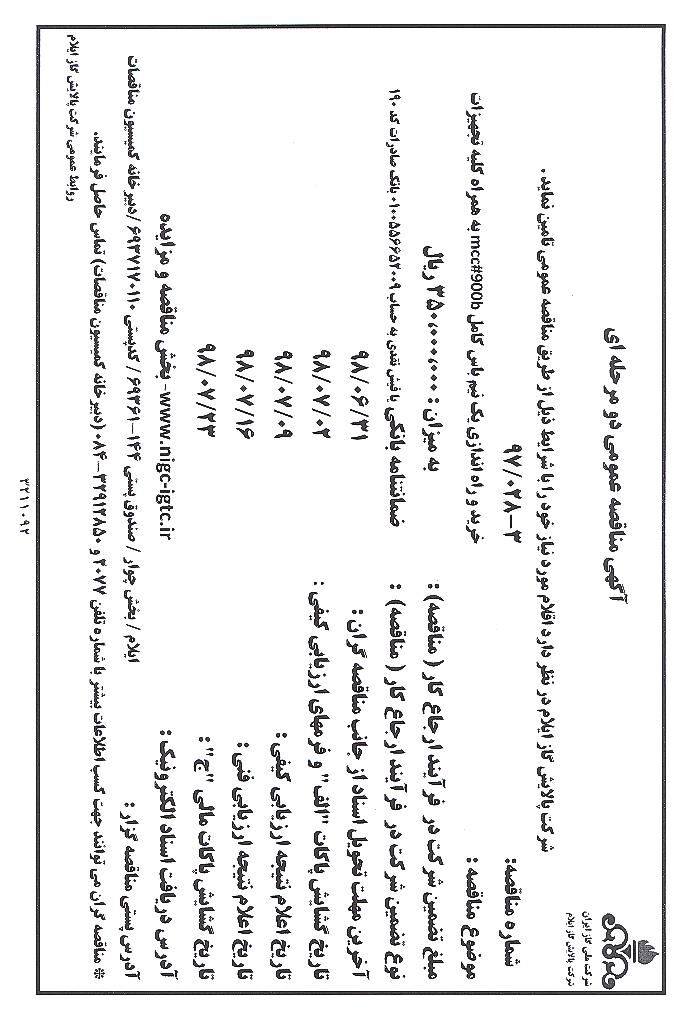 شرکت ملی گاز ایران
شرکت پالایش گاز ایلام
آگهی مناقصه عمومی دو مرحله ای
شرکت پالایش گاز ایلام در نظر دارد اقلام مورد نیاز خود را با شرایط ذیل از طریق مناقصه عمومی تامین نماید.
شماره مناقصه: ۹۷/۰۲۸-۳
موضوع مناقصه : خرید و راه اندازی یک نیم باس کامل mcc#900b به همراه کلیه تجهیزات
مبلغ تضمین شرکت در فرآیند ارجاع کار ( مناقصه) : به میزان : ۳۵۰,۰۰۰,۰۰۰ ریال
نوع تضمین شرکت در فرآیند ارجاع کار ( مناقصه) : ضمانتنامه بانکی یا فیش نقدی به حساب ۰۱۰۰۵۵۶۶۵۲۰۰۹ بانک صادرات کد ۱۹۰
آخرین مهلت تحویل اسناد از جانب مناقصه گران : ۹۸/۰۶/۳۱
تاریخ گشایش پاکات "الف" و فرمهای ارزیابی کیفی : ۹۸/۰۷/۰۲
تاریخ اعلام نتیجه ارزیابی کیفی : ۹۸/۰۷/۰۹
تاریخ اعلام نتیجه ارزیابی فنی : ۹۸/۰۷/۱۶
تاریخ گشایش پاکات مالی "ج" : ۹۸/۰۷/۲۳
آدرس دریافت اسناد الکترونیک : www.nigc-igtc.ir- بخش مناقصه و مزایده
آدرس پستی مناقصه گزار : ایلام / بخش چوار / صندوق پستی ۱۴۴-۶۹۳۶۱ / کدپستی ۶۹۳۷۱۷۰۱۱۰ /دبیرخانه کمیسیون مناقصات
* مناقصه گران می توانند جهت کسب اطلاعات بیشتر با شماره تلفن ۲۰۷۷ و ۳۲۹۱۲۸۵۰-۰۸۴ (دبیرخانه کمیسیون مناقصات) تماس حاصل فرمایند.
روابط عمومی شرکت پالایش گاز ایلام
۳۲۱۱۰۹۲